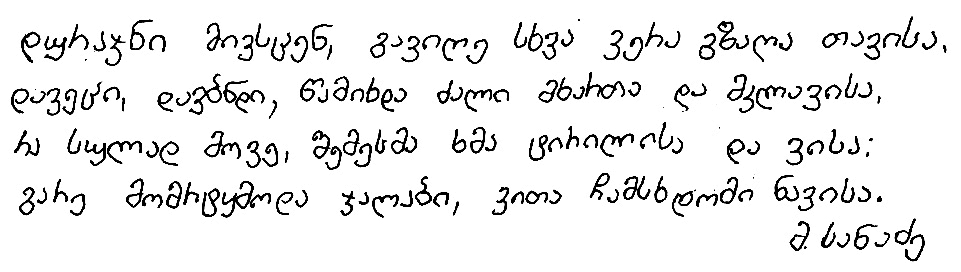 დურაჯნი მივსცენ, გავიღე სხვა ვერა გზაღა თავისა.
დავეცი, დავბნდი, წამიხდა ძალი მხართა და მკლავისა,
რა სულად მოვე, შემესმა ხმა ტირილისა და ვისა;
გარე მომრტყმოდა ჯალაბი, ვითა ჩამსხდომი ნავისა.
მ. სანაძე